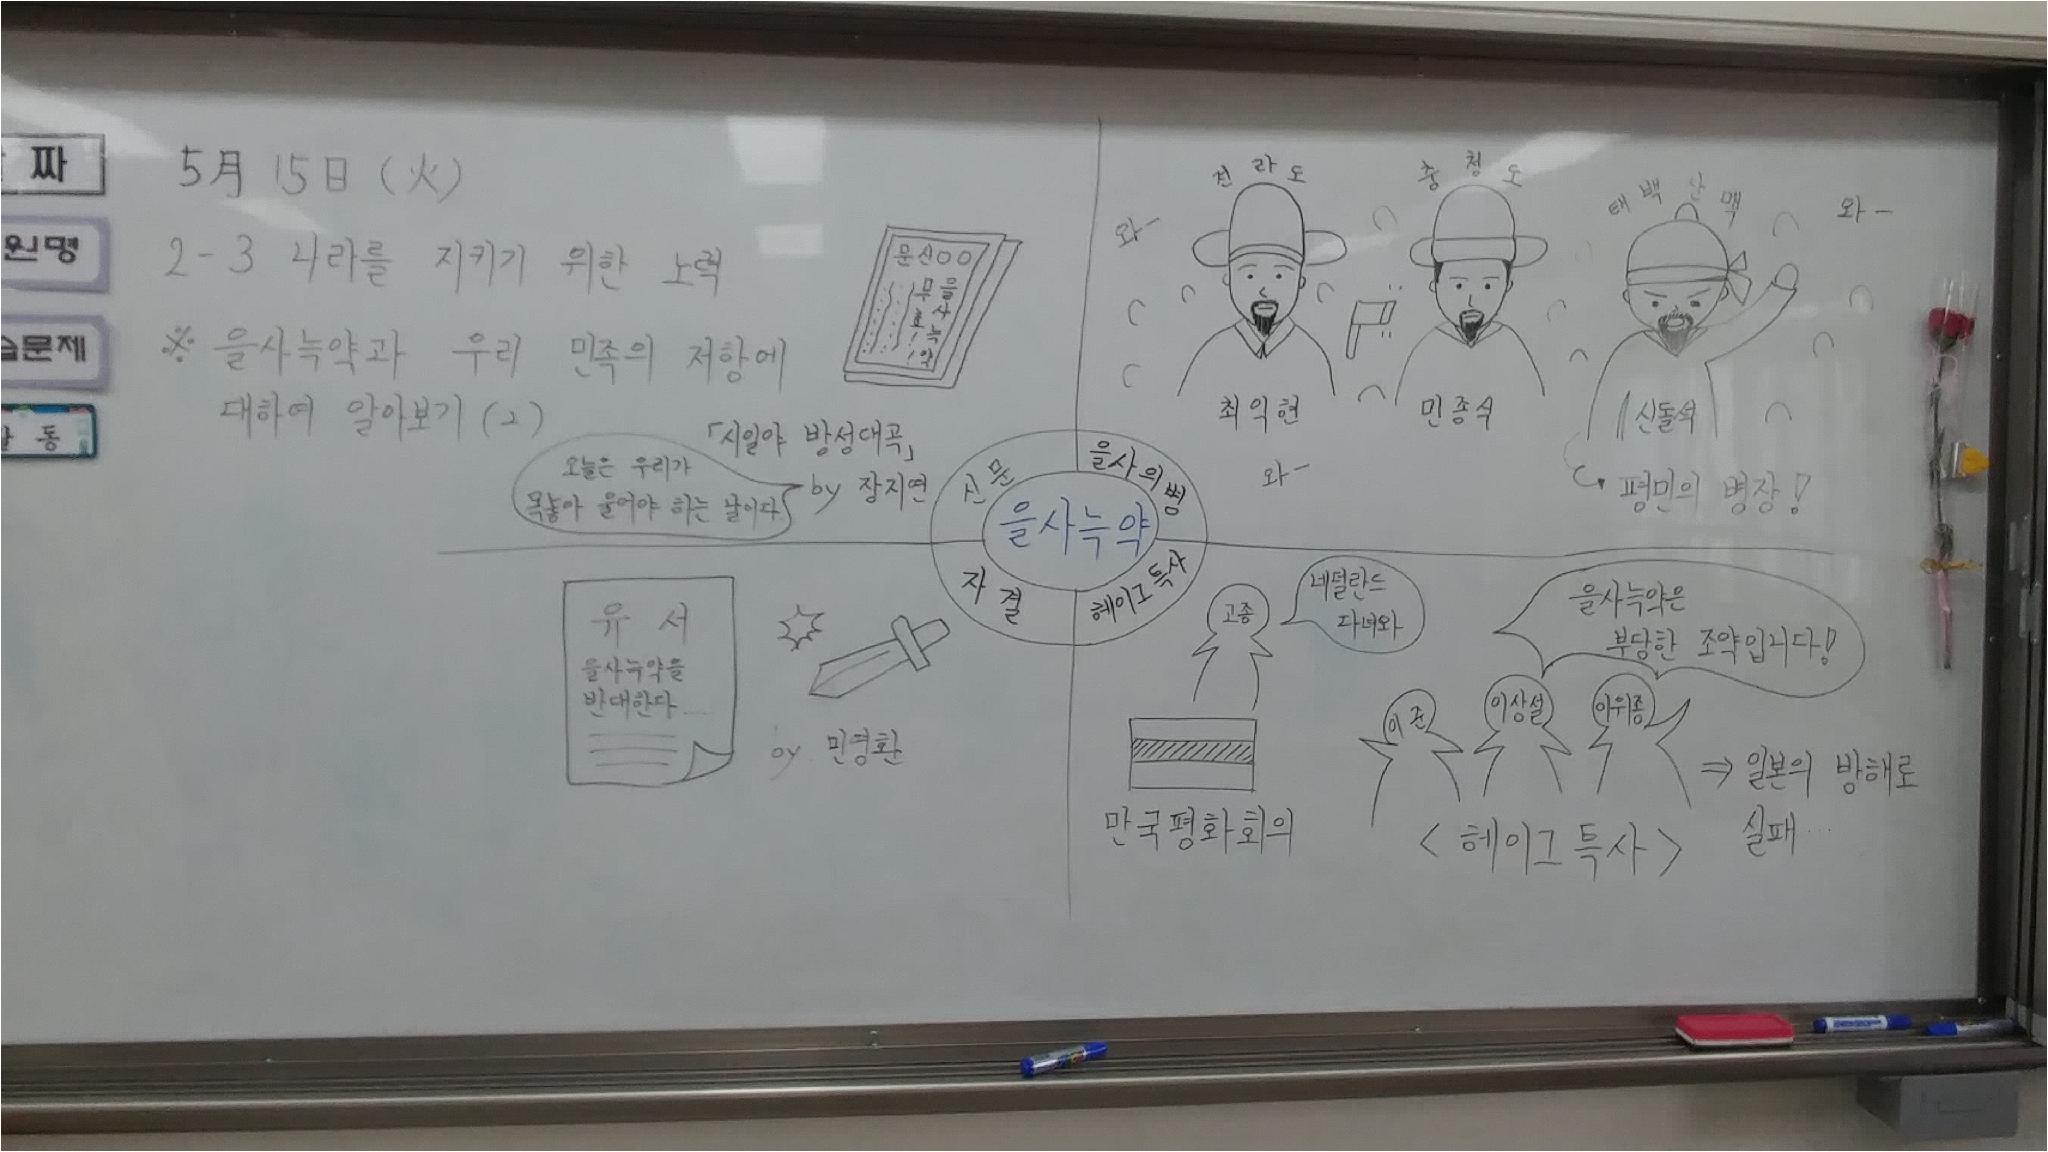 짜
5月 15日 (火)
원명
2-3 나라를 지키기 위한 노력
습문제
※ 을사늑약과 우리 민족의 저항에
대하여 알아보기 (2)
동
문신○○
을사늑약
무효!
「시일야 방성대곡」
by 장지연
오늘은 우리가
목놓아 울어야 하는 날이다.
전라도
충청도
태백산맥
와-
와-
와-
최익현
민종식
신돌석
평민의 병장!
신문
을사의병
을사늑약
자결
헤이그 특사
유서
을사늑약을
반대한다...
by 민영환
고종
네덜란드
다녀와
을사늑약은
부당한 조약입니다!
이준
이상설
이위종
만국평화회의
<헤이그 특사>
⇒ 일본의 방해로
실패...